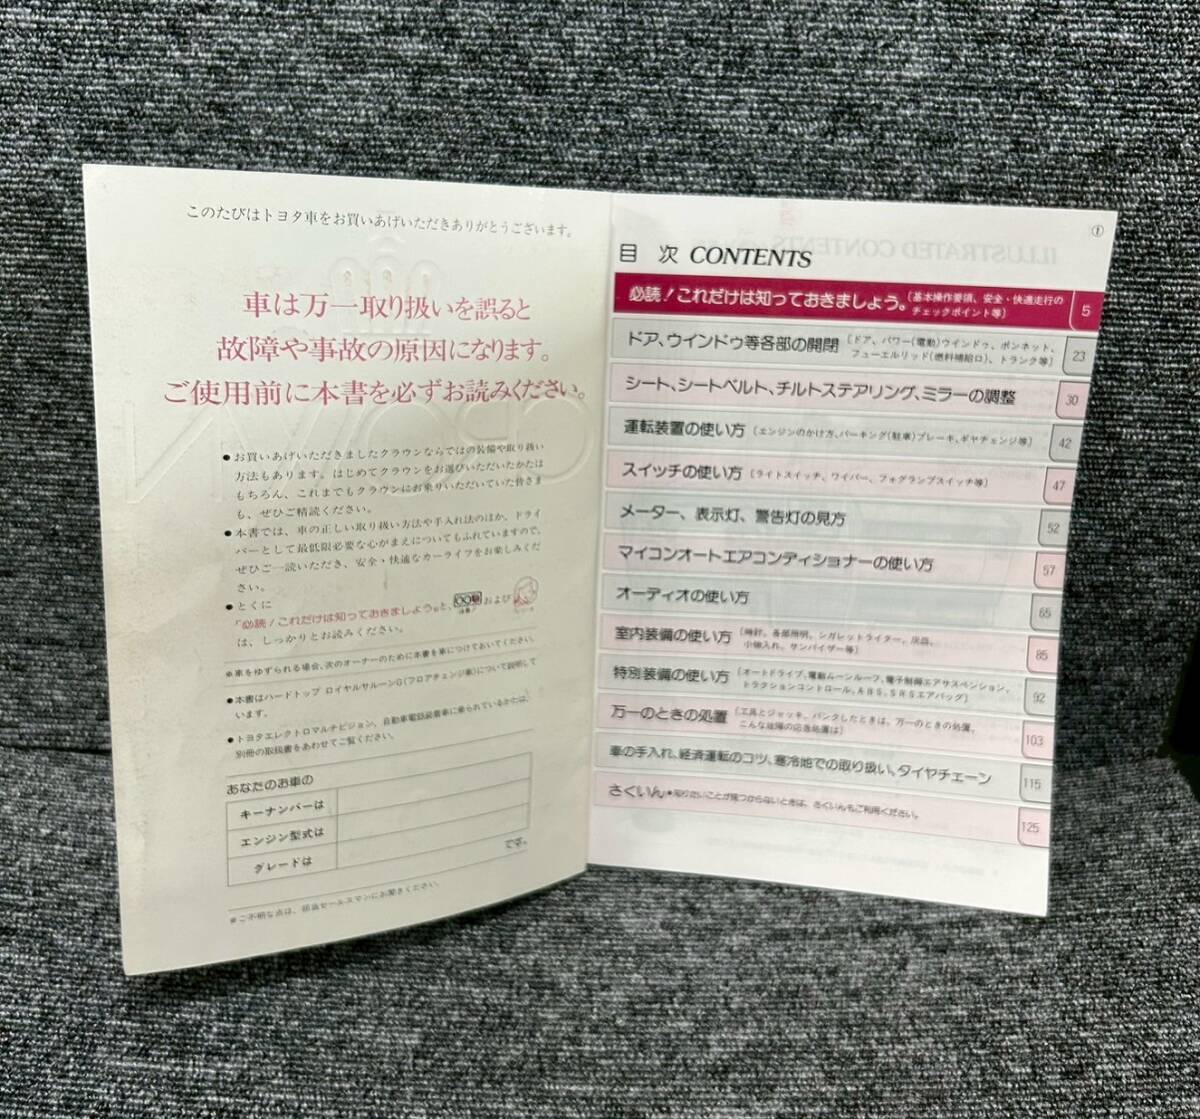 このたびはトヨタ車をお買いあげいただきありがとうございます。
車は万一取り扱いを誤ると
故障や事故の原因になります。
ご使用前に本書を必ずお読みください。
●お買いあげいただきましたクラウンならではの装備や取り扱い
方法もあります。はじめてクラウンをお選びいただいたかたは
もちろん、これまでもクラウンにお乗りいただいていた皆さま
も、ぜひご精読ください。
●本書では、車の正しい取り扱い方法や手入れ法のほか、ドライ
バーとして最低限必要な心がまえについてもふれていますので、
ぜひご一読いただき、安全・快適なカーライフをお楽しみくだ
さい。
●とくに
「必読!これだけは知っておきましょう。」と、 および
は、しっかりとお読みください。
※車をゆずられる場合、次のオーナーのために本書を車につけておいてください。
●本書はハードトップ ロイヤルサルーンG(フロアチェンジ車)について説明して
います。
●トヨタエレクトロマルチビジョン、自動車電話装着車に乗られているかたは、
別冊の取扱書をあわせてご覧ください。
あなたのお車の
キーナンバーは
エンジン型式は
グレードは
です。
※ご不明な点は、担当セールスマンにお聞きください。
①
目 次 CONTENTS
必読!これだけは知っておきましょう。〔基本操作要領、安全・快適走行の
チェックポイント等〕 5
ドア、ウインドゥ等各部の開閉〔ドア、パワー(電動)ウインドゥ、ボンネット、
フューエルリッド(燃料補給口)、トランク等〕 23
シート、シートベルト、チルトステアリング、ミラーの調整 30
運転装置の使い方〔エンジンのかけ方、パーキング(駐車)ブレーキ、ギヤチェンジ等〕 42
スイッチの使い方〔ライトスイッチ、ワイパー、フォグランプスイッチ等〕 47
メーター、表示灯、警告灯の見方 52
マイコンオートエアコンディショナーの使い方 57
オーディオの使い方 65
室内装備の使い方〔時計、各部照明、シガレットライター、灰皿、
小物入れ、サンバイザー等〕 85
特別装備の使い方〔オートドライブ、電動ムーンルーフ、電子制御エアサスペンション、
トラクションコントロール、ABS、SRSエアバッグ〕 92
万一のときの処置〔工具とジャッキ、パンクしたときは、万一のときの処置、
こんな故障の応急処置は〕 103
車の手入れ、経済運転のコツ、寒冷地での取り扱い、タイヤチェーン 115
さくいん●知りたいことが見つからないときは、さくいんもご利用ください。 125